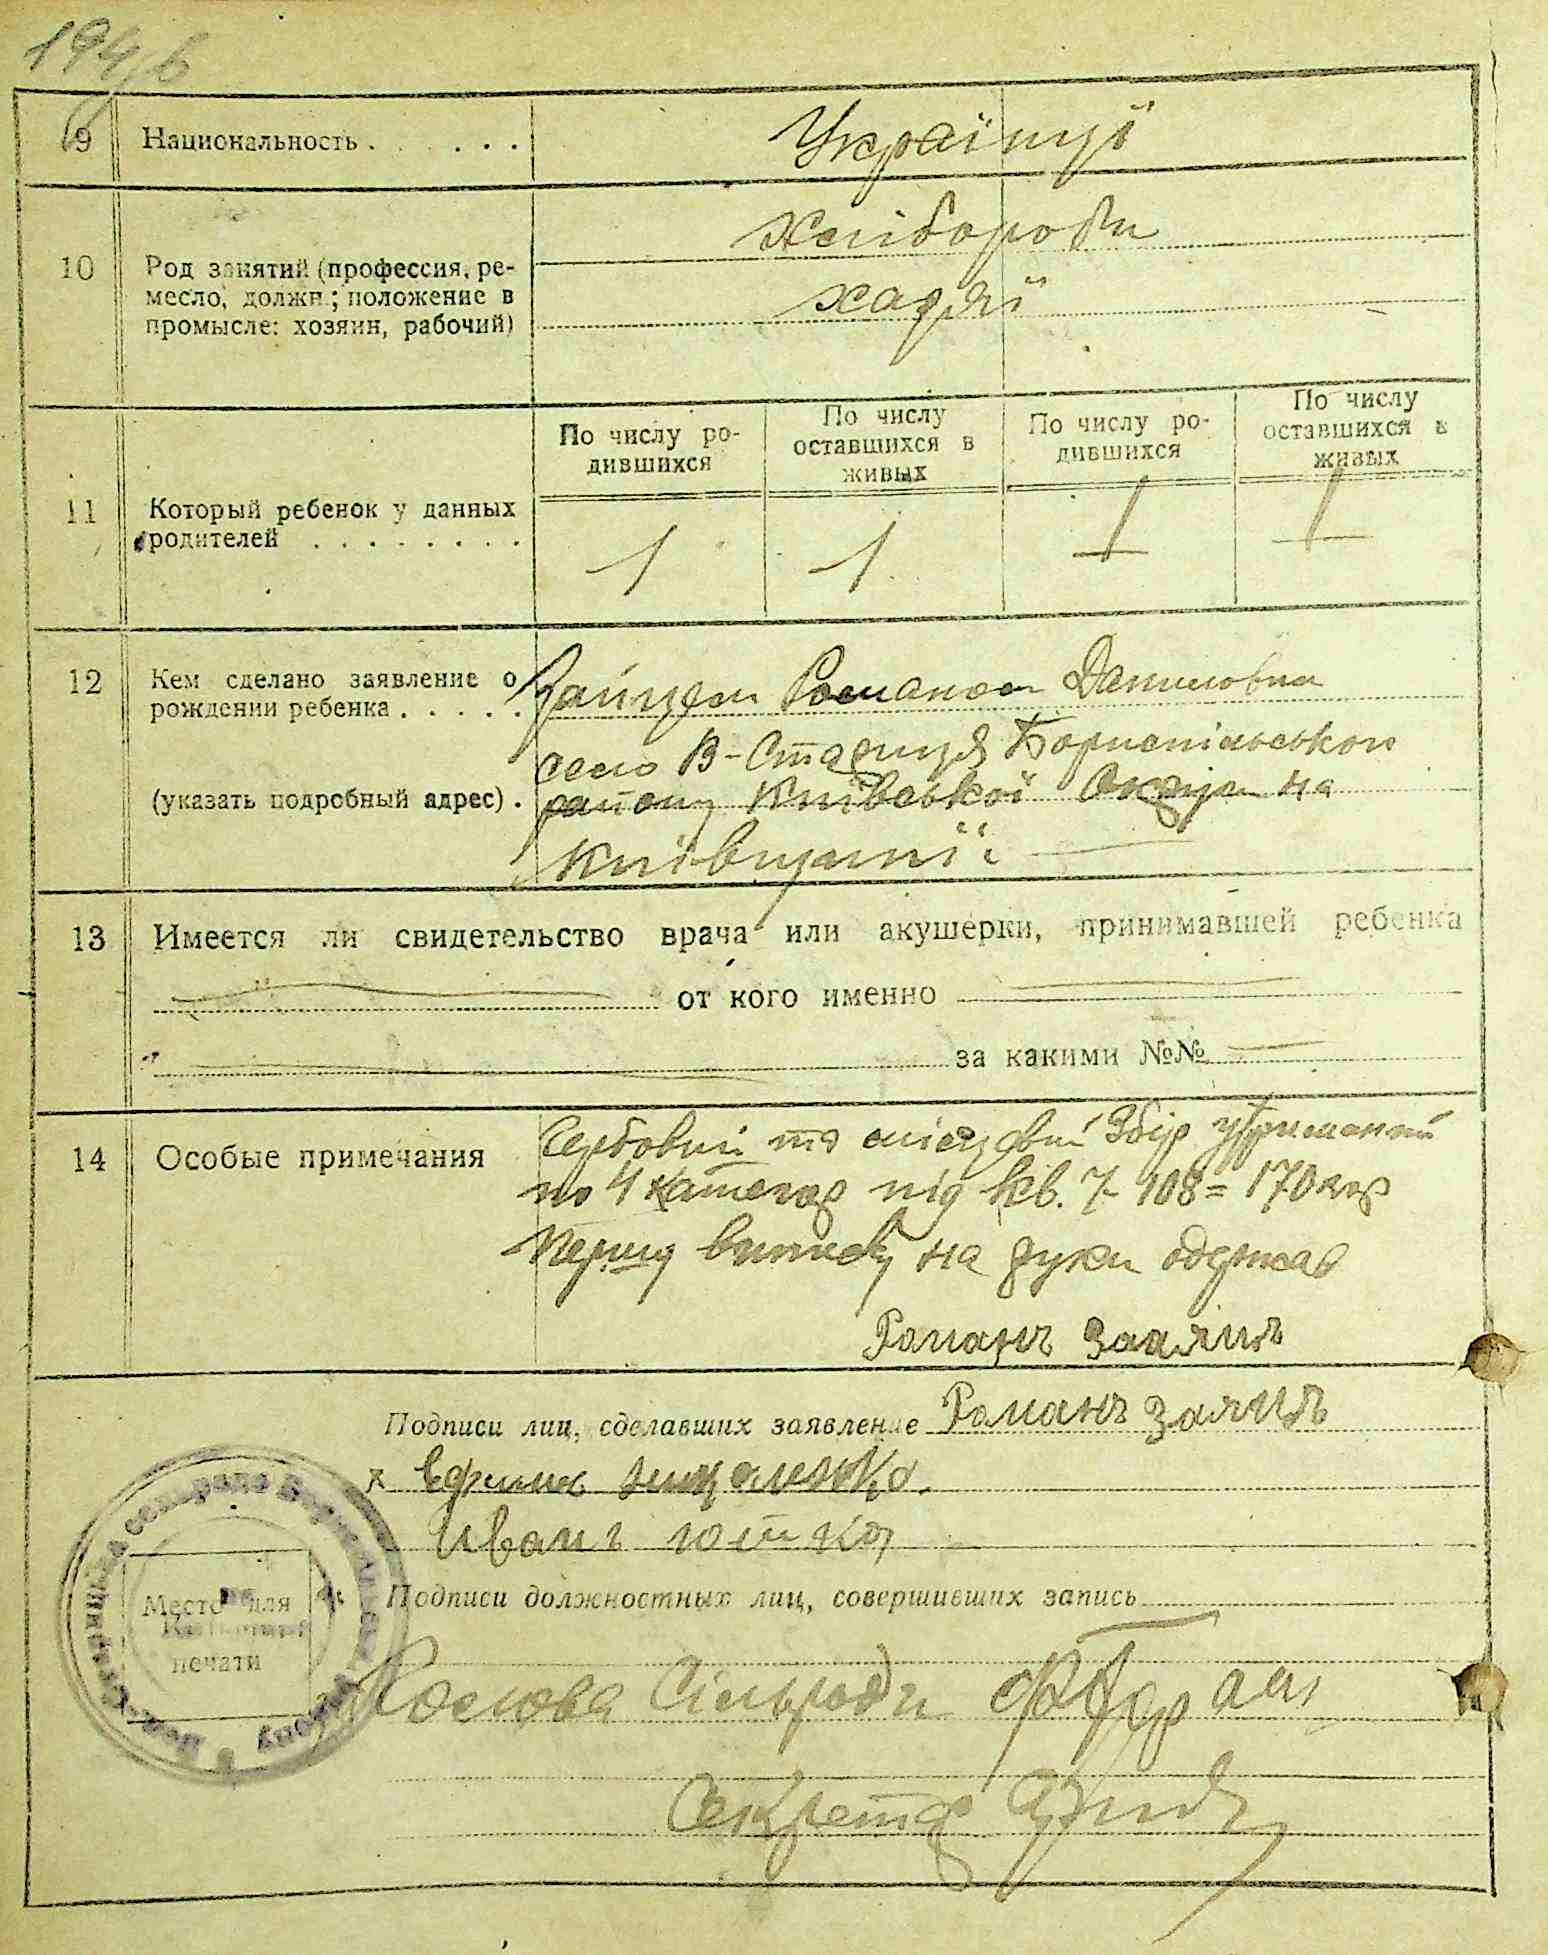 194/6
9 Национальность . . . . . . Українці
10 Род занятий (профессия, ре-
месло, должн.; положение в
промысле: хозяин, рабочий)
хлібороби
хазяї
11 Который ребенок у данных
родителей . . . . . . . .
По числу ро-
дившихся
По числу
оставшихся в
живых
По числу ро-
дившихся
По числу
оставшихся в
живых
1 1 1 1
12 Кем сделано заявление о
рождении ребенка . . . . .
(указать подробный адрес) .
Зайцем Романом Даниловим
село В-Стариця Бориспільського
району Київської Округи на
Київщині
13 Имеется ли свидетельство врача или акушерки, принимавшей ребенка
от кого именно
за какими №№
14 Особые примечания
та місцевий Збір утриманий
по 4 категор під кв. 7-108 = 170 коп
Першу виписку на руки одержав
Романъ Заяць
Подписи лиц, сделавших заявление Романъ Заяць
Иванъ
Место для
печати
Подписи должностных лиц, совершивших запись
Голова Сільради
Секретар